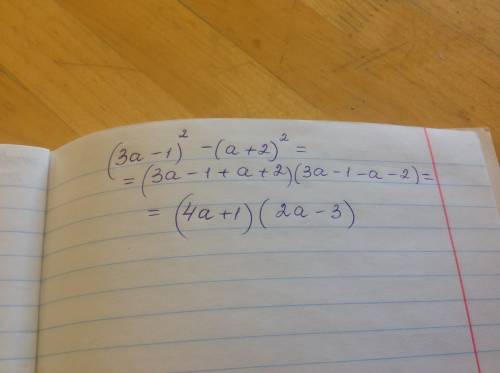 (3a-1)² -(a+2)² =
=(3a-1+a+2)(3a-1-a-2)=
= (4a+1)(2a-3)